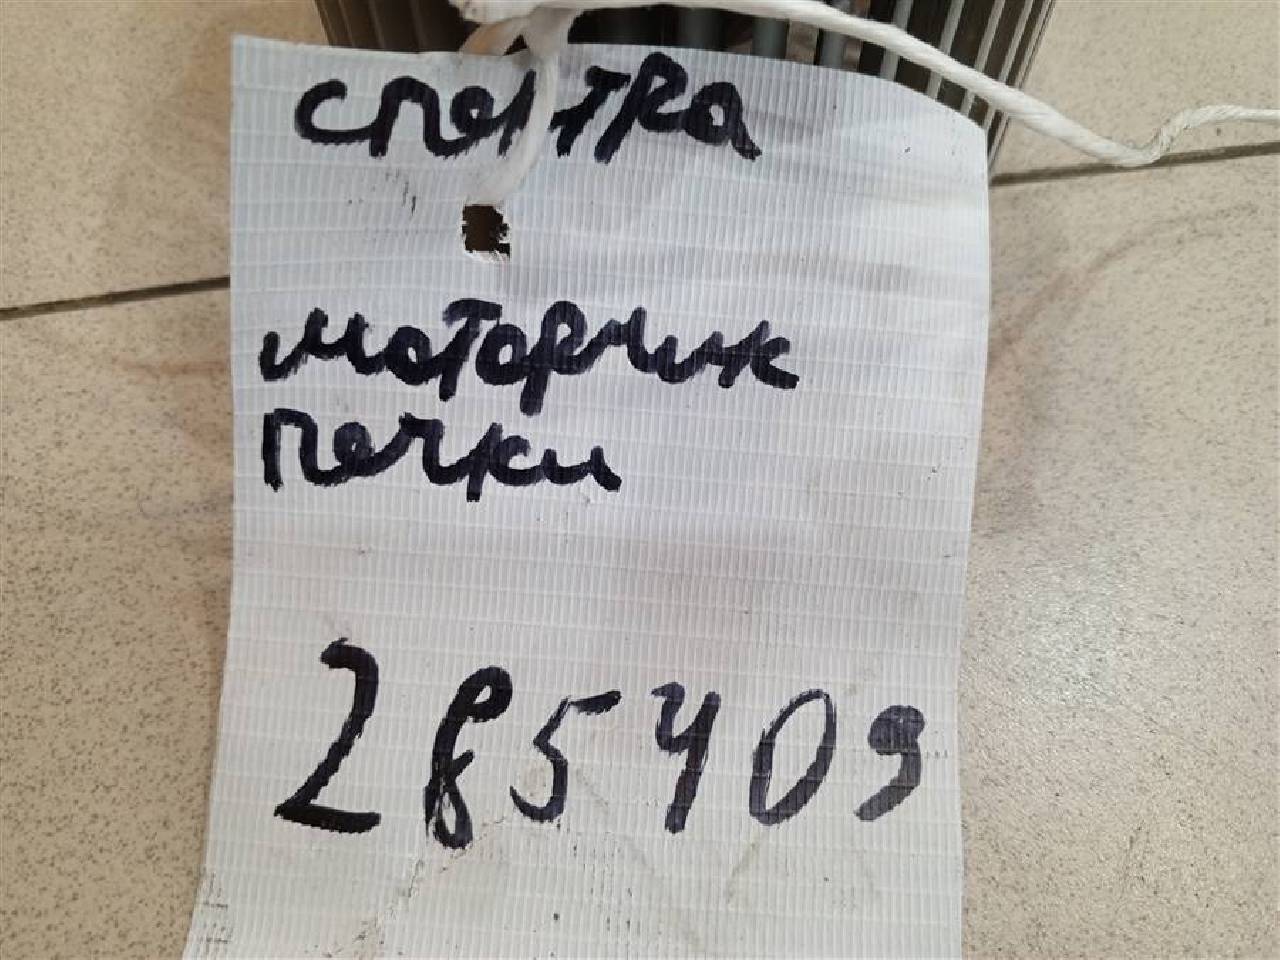 спектра
моторчик
печки
285409